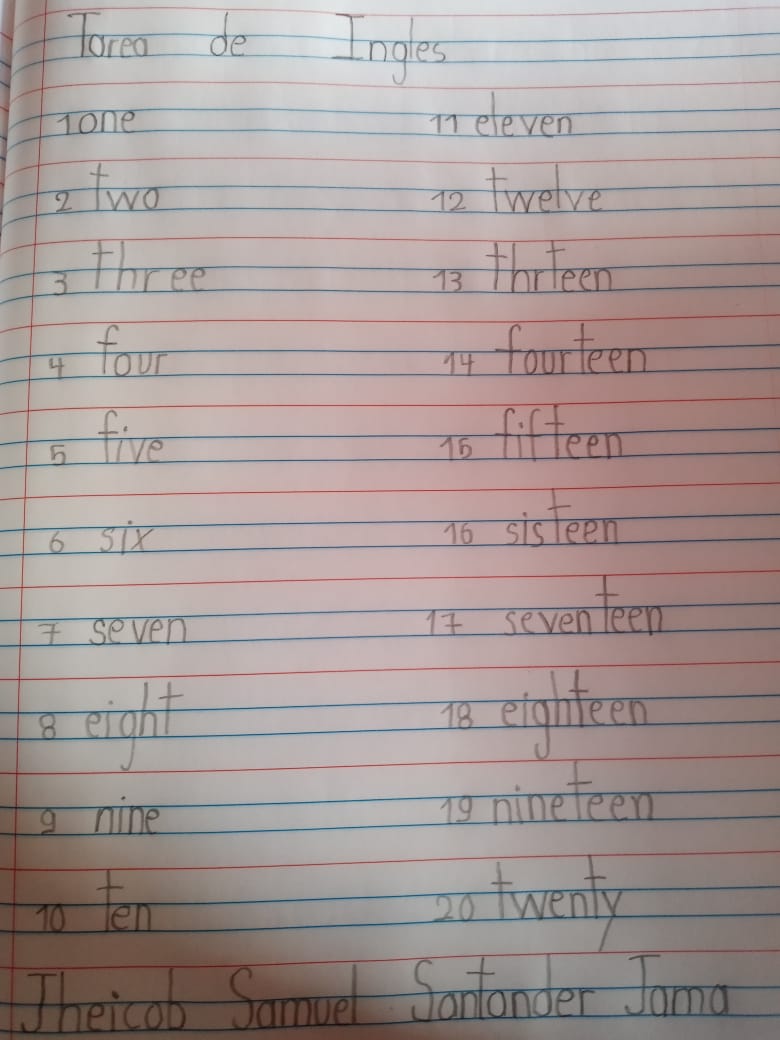 Tarea de Ingles
1 one 11 eleven
2 two 12 twelve
3 three 13 thrteen
4 four 14 fourteen
5 five 15 fifteen
6 six 16 sisteen
7 seven 17 seventeen
8 eight 18 eighteen
9 nine 19 nineteen
10 ten 20 twenty
Jheicob Samuel Santander Jama